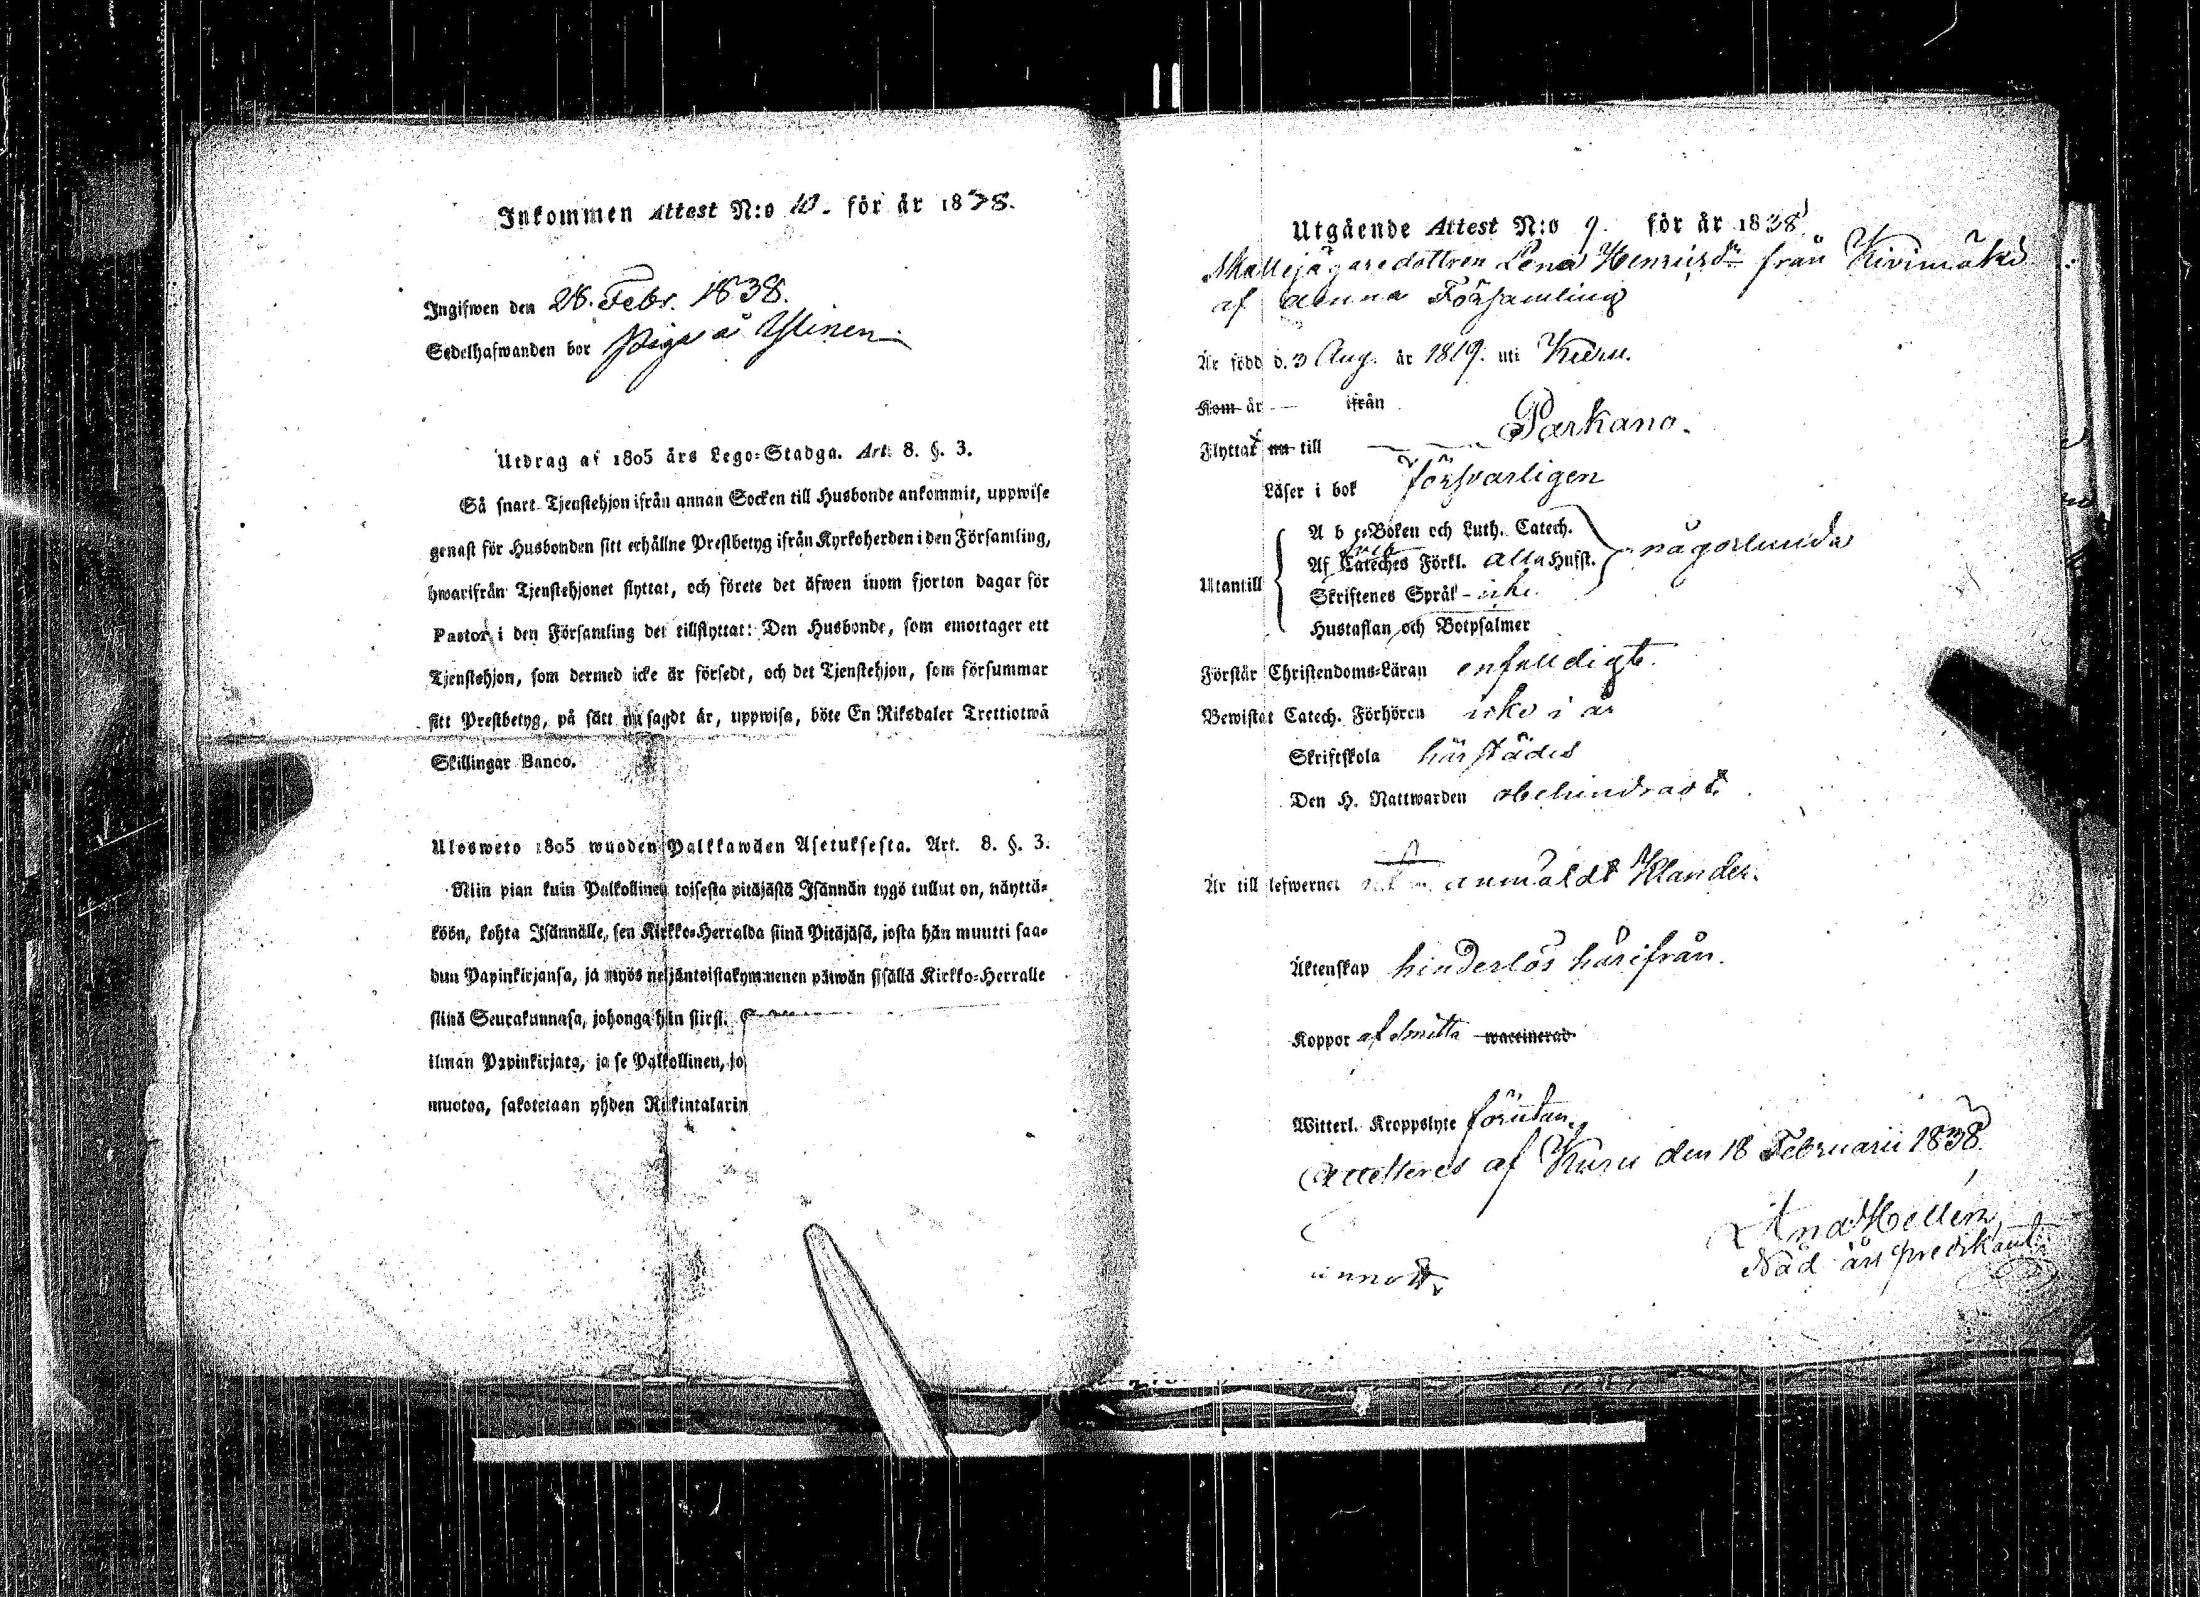 Inkommen Attest N:o 10. för år 1838.
Ingifwen den 28. Febr. 1838.
Sedelhafwanden bor Piga å Ylinen
Utdrag af 1805 års Lego-Stadga. Art. 8. §. 3.
Så snart Tjenstehjon ifrån annan Socken till Husbonde ankommit, uppwise
genast för Husbonden sitt erhållne Prestbetyg ifrån Kyrkoherden i den Församling,
hwarifrån Tjenstehjonet flyttat, och förete det äfwen inom fjorton dagar för
Pastor i den Församling det tillflyttat: Den Husbonde, som emottager ett
Tjenstehjon, som dermed icke är försedt, och det Tjenstehjon, som försummar
sitt Prestbetyg, på sätt nu sagdt är, uppwisa, böte En Riksdaler Trettiotwå
Skillingar Banco.
Ulosweto 1805 wuoden Palkkawäen Asetuksesta. Art. 8. §. 3.
Niin pian kuin Palkollinen toisesta pitäjästä Isännän tygö tullut on, näyttä-
köön, kohta Isännälle, sen Kirkko-Herralda siinä Pitäjäsä, josta hän muutti saa-
dun Papinkirjansa, ja myös neljäntoistakymmenen päiwän sisällä Kirkko-Herralle
siinä Seurakunnasa, johonga hän siirsi.
ilman Papinkirjata, ja se Palkollinen, jo
muotoa, sakotetaan yhden Rikintalarin
Utgående Attest N:o 9. för år 1838
Skallejägaredottren Lena Henricsdr från Kivimäki
af denna Församling
Är född d. 3 Aug. år 1819. uti Kuru.
Kom år — ifrån
Flyttar nu till Parkano.
Läser i bok försvarligen
Utantill
A b c-Boken och Luth. Catech.
Af Cateches Förkl. alla Husst. någorlunda
Skriftenes Språk - icke
Hustaflan och Botpsalmer
Förstår Christendoms-Läran enfalldigt.
Bewistat Catech. Förhören icke i år
Skriftskola härstädes
Den H. Nattwarden obehindradt.
Är till lefwernet anmäldt Klander.
Äktenskap hinderlös härifrån.
Koppor af Smitta waccinerad
Witterl. Kroppslyte förutan.
Attesteres af Kuru den 18 Februarii 1838.
And Hellén
Nåd års predikant